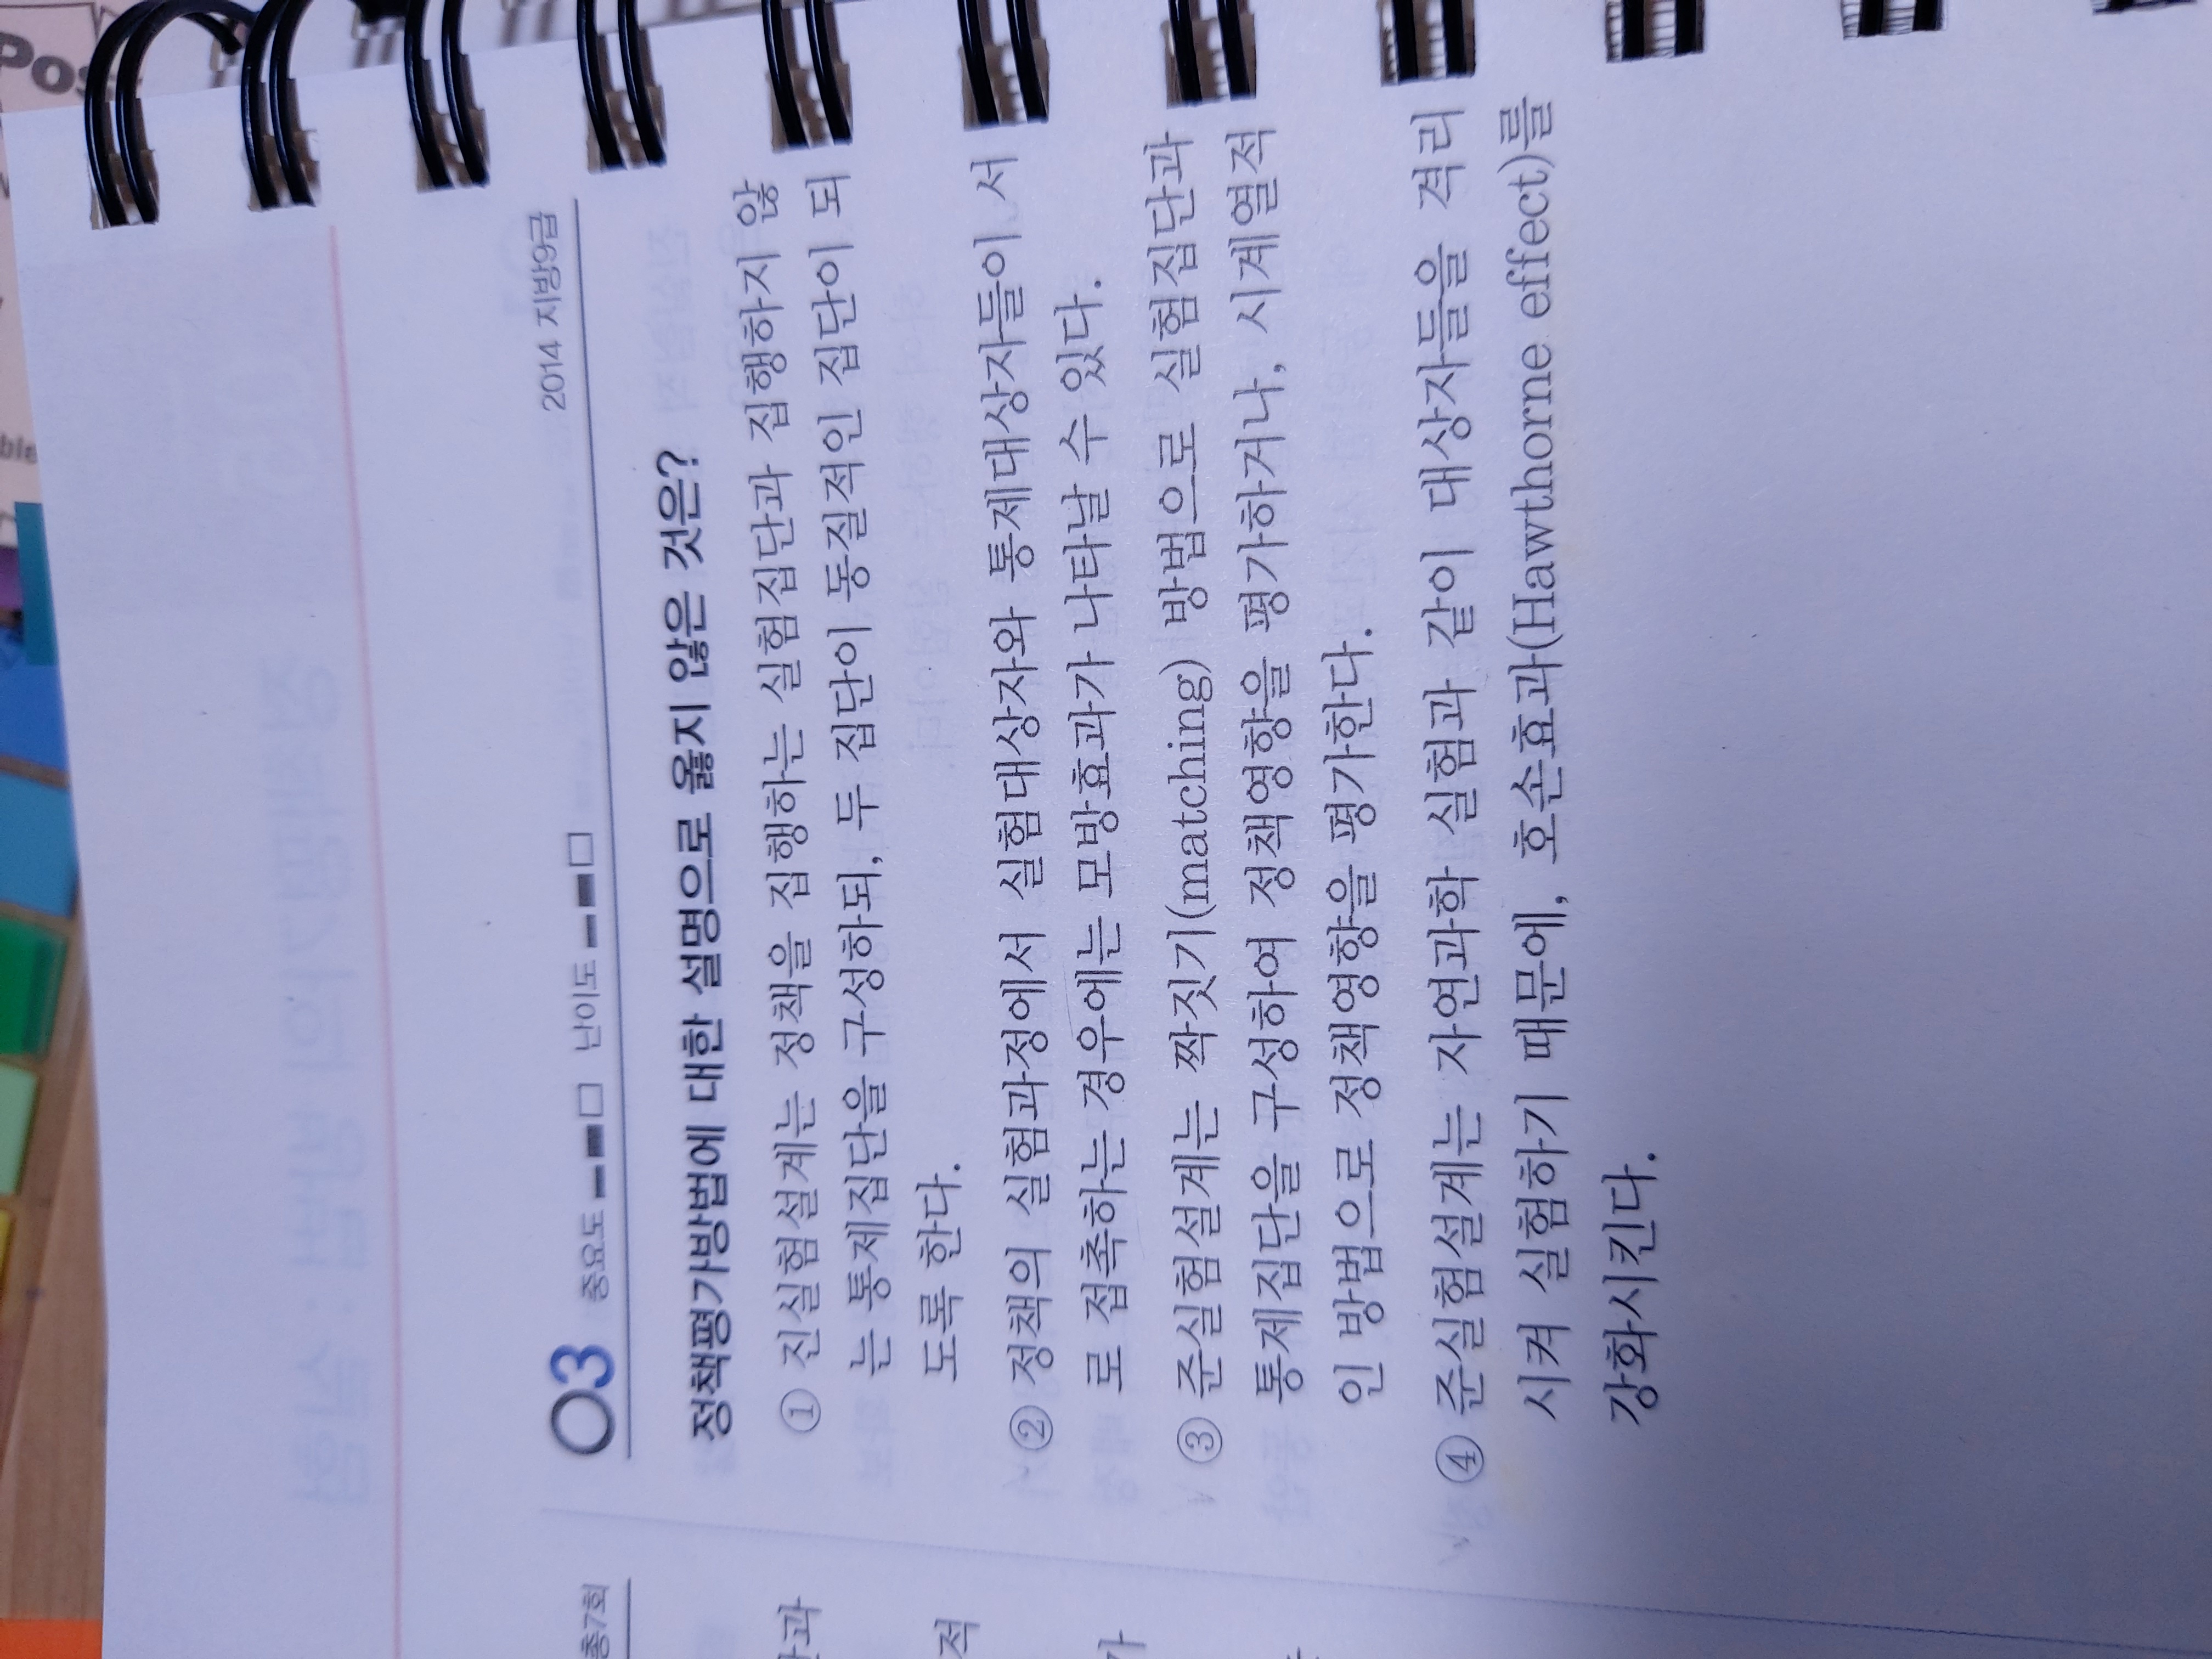 Pos
ble
03 중요도 난이도 2014 지방9급
정책평가방법에 대한 설명으로 옳지 않은 것은?
① 진실험설계는 정책을 집행하는 실험집단과 집행하지 않
는 통제집단을 구성하되, 두 집단이 동질적인 집단이 되
도록 한다.
② 정책의 실험과정에서 실험대상자와 통제대상자들이 서
로 접촉하는 경우에는 모방효과가 나타날 수 있다.
③ 준실험설계는 짝짓기(matching) 방법으로 실험집단과
통제집단을 구성하여 정책영향을 평가하거나, 시계열적
인 방법으로 정책영향을 평가한다.
④ 준실험설계는 자연과학 실험과 같이 대상자들을 격리
시켜 실험하기 때문에, 호손효과(Hawthorne effect)를
강화시킨다.
총7회
적
가